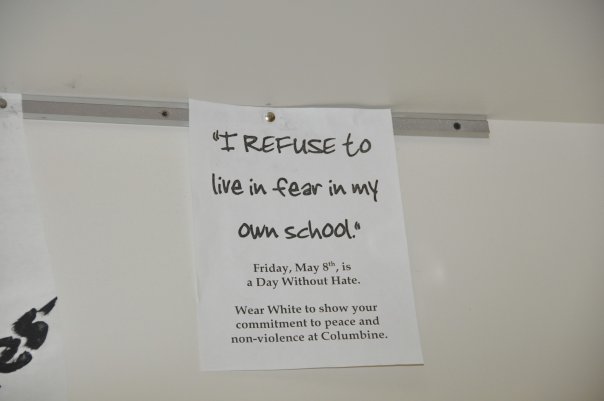 "I REFUSE to
live in fear in my
own school."
Friday, May 8th, is
a Day Without Hate.
Wear White to show your
commitment to peace and
non-violence at Columbine.